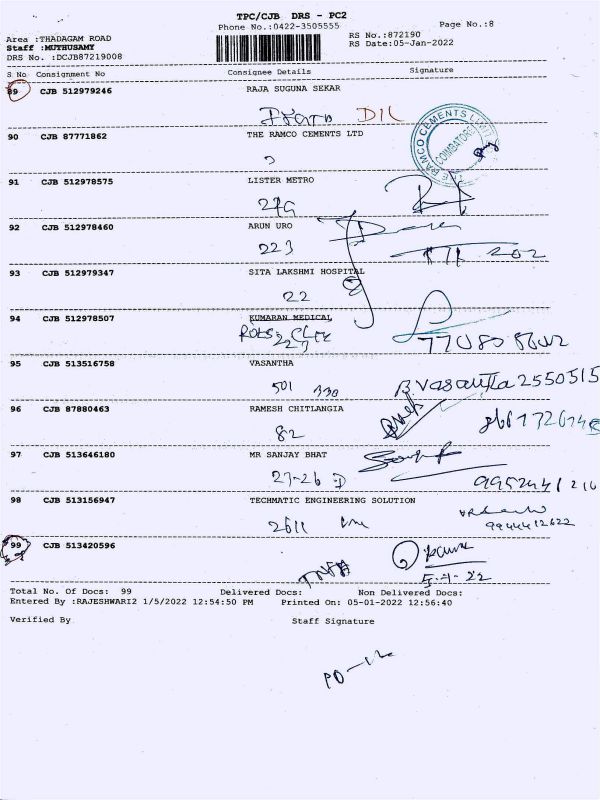 TPC/CJB DRS - PC2
Phone No.:0422-3505555
Page No.:8
Area :THADAGAM ROAD
RS No.:872190
Staff :MUTHUSAMY
RS Date:05-Jan-2022
DRS No. :DCJB87219008
S No Consignment No Consignee Details Signature
89 CJB 512979246 RAJA SUGUNA SEKAR
90 CJB 87771862 THE RAMCO CEMENTS LTD
RAMCO CEMENTS LIMITED
COIMBATORE
91 CJB 512978575 LISTER METRO
92 CJB 512978460 ARUN URO
223
202
93 CJB 512979347 SITA LAKSHMI HOSPITAL
22
94 CJB 512978507 KUMARAN MEDICAL
95 CJB 513516758 VASANTHA
501 330 B Vasantha 2550515
96 CJB 87880463 RAMESH CHITLANGIA
82
97 CJB 513646180 MR SANJAY BHAT
27-26
98 CJB 513156947 TECHMATIC ENGINEERING SOLUTION
2611
9944412622
99 CJB 513420596
5-1-22
Total No. Of Docs: 99 Delivered Docs: Non Delivered Docs:
Entered By :RAJESHWARI2 1/5/2022 12:54:50 PM Printed On: 05-01-2022 12:56:40
Verified By Staff Signature